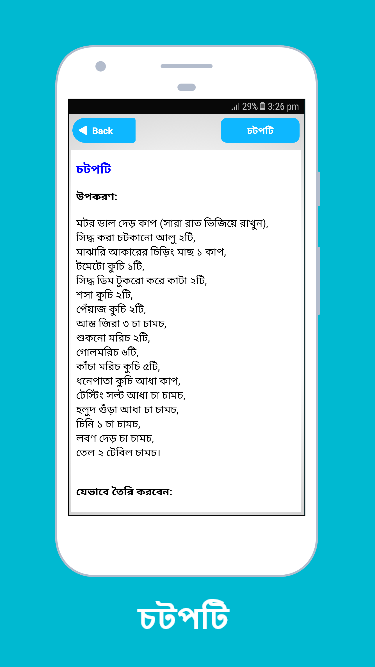 29% 3:26 pm
Back
চটপটি
চটপটি
উপকরণ:
মটর ডাল দেড় কাপ (সারা রাত ভিজিয়ে রাখুন),
সিদ্ধ করা চটকানো আলু ২টি,
মাঝারি আকারের চিড়িং মাছ ১ কাপ,
টমেটো কুচি ১টি,
সিদ্ধ ডিম টুকরো করে কাটা ২টি,
শসা কুচি ২টি,
পেঁয়াজ কুচি ২টি,
আস্ত জিরা ৩ চা চামচ,
শুকনো মরিচ ২টি,
গোলমরিচ ৬টি,
কাঁচা মরিচ কুচি ৫টি,
ধনেপাতা কুচি আধা কাপ,
টেস্টিং সল্ট আধা চা চামচ,
হলুদ গুঁড়া আধা চা চামচ,
চিনি ১ চা চামচ,
লবণ দেড় চা চামচ,
তেল ২ টেবিল চামচ।
যেভাবে তৈরি করবেন:
চটপটি